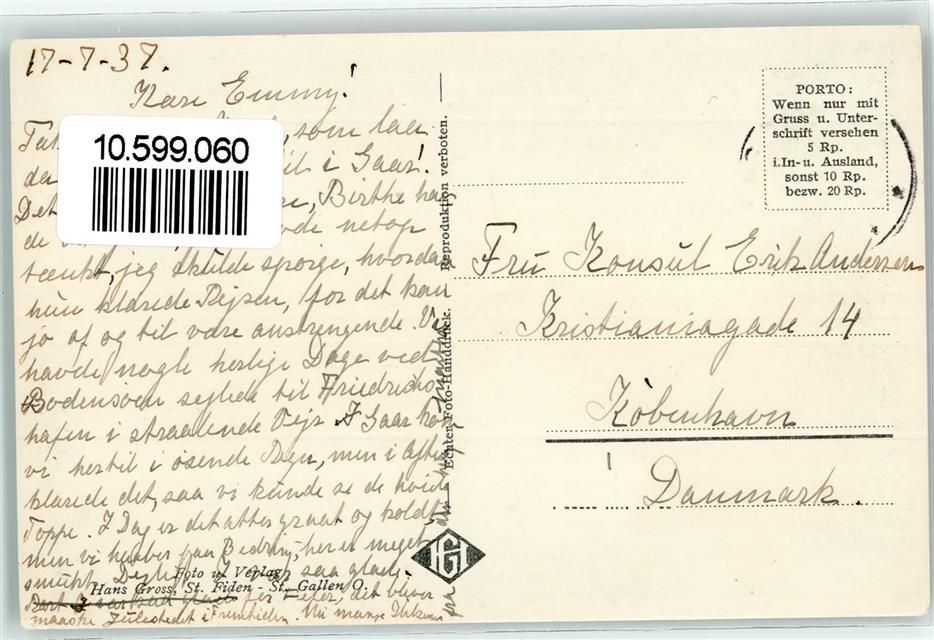 17-7-37.
Kære Emmy!
som laa
i Gaar!
Det Birthe ha
de netop
tænkt, jeg skulde spørge, hvordan
hun klarede Rejsen, for det kan
jo af og til være anstrengende. Vi
havde nogle herlige Dage ved
Bodensøen sejlede til Friedrichs-
hafen i straalende Vejr I Gaar kom
vi hertil i øsende Regn, men i Aftes
klarede det, saa vi kunde se de hvide
Toppe. I Dag er det atter graat og koldt
men vi haaber paa Bedring, her er meget
smukt. saa glad.
det bliver
maaske i Fremtiden.
Foto u. Verlag
Hans Gross, St. Fiden - St. Gallen O.
10.599.060
Echten Foto-Handdruck. Reproduktion verboten.
HG
PORTO:
Wenn nur mit
Gruss u. Unter-
schrift versehen
5 Rp.
i.In- u. Ausland,
sonst 10 Rp.
bezw. 20 Rp.
Fru Konsul Erik Andersen
Kristianiagade 14
København
Danmark.